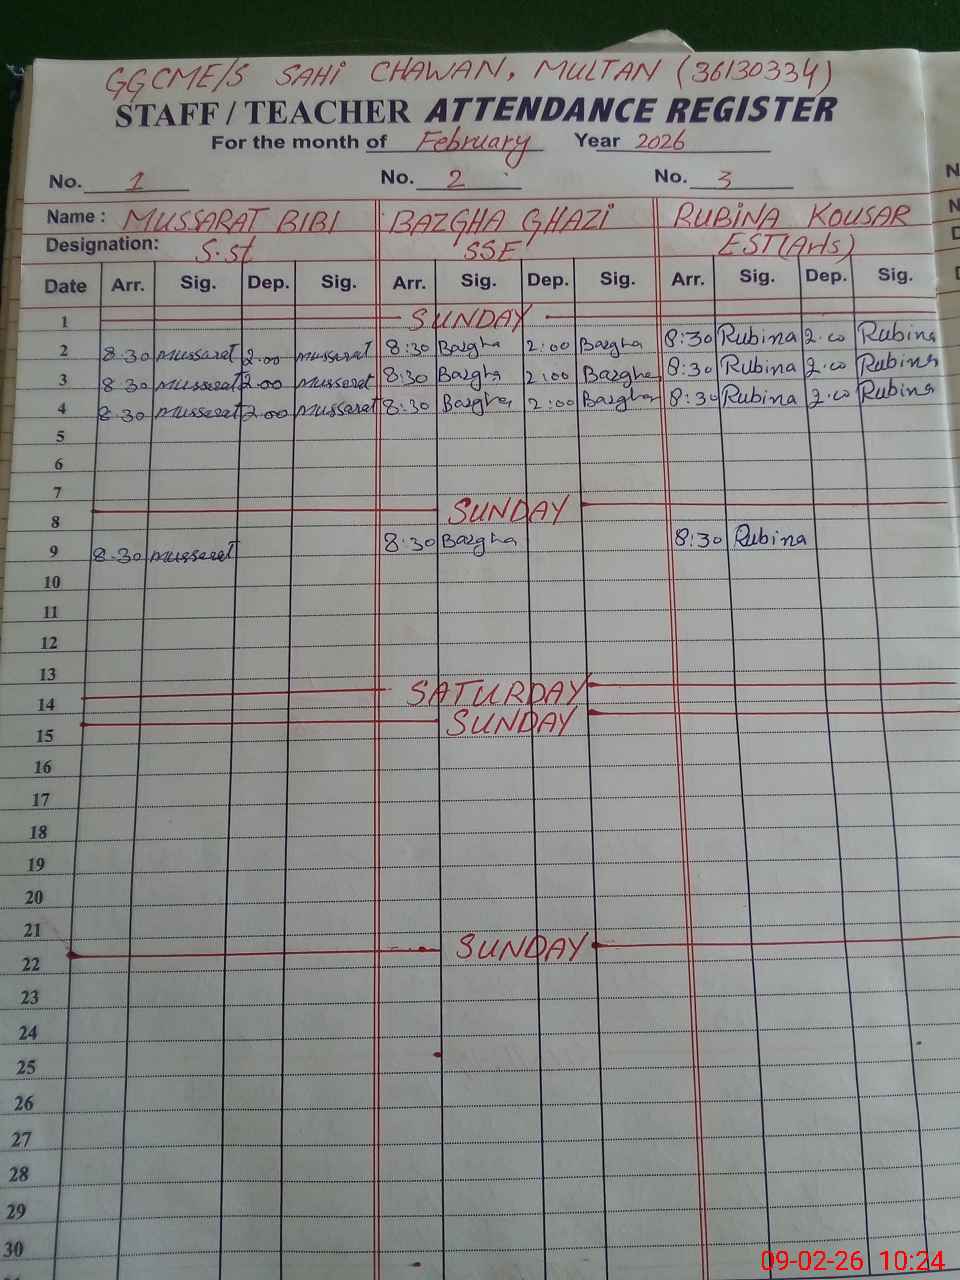 GGCME/S SAHI CHAWAN, MULTAN (36130334)
STAFF / TEACHER ATTENDANCE REGISTER
For the month of February Year 2026
No. 1 No. 2 No. 3
Name : MUSSARAT BIBI BAZGHA GHAZI RUBINA KOUSAR
Designation: S.st SSE EST(Arts)
Date Arr. Sig. Dep. Sig. Arr. Sig. Dep. Sig. Arr. Sig. Dep. Sig.
1 SUNDAY
2 8.30 mussarat 2.00 mussarat 8:30 Bazgha 2:00 Bazgha 8:30 Rubina 2.00 Rubina
3 8.30 mussarat 2.00 mussarat 8:30 Bazgha 2:00 Bazgha 8:30 Rubina 2.00 Rubina
4 8.30 mussarat 2.00 mussarat 8:30 Bazgha 2:00 Bazgha 8:30 Rubina 2.00 Rubina
5
6
7
8 SUNDAY
9 8.30 mussarat 8:30 Bazgha 8:30 Rubina
10
11
12
13
14 SATURDAY
15 SUNDAY
16
17
18
19
20
21
22 SUNDAY
23
24
25
26
27
28
29
30
09-02-26 10:24